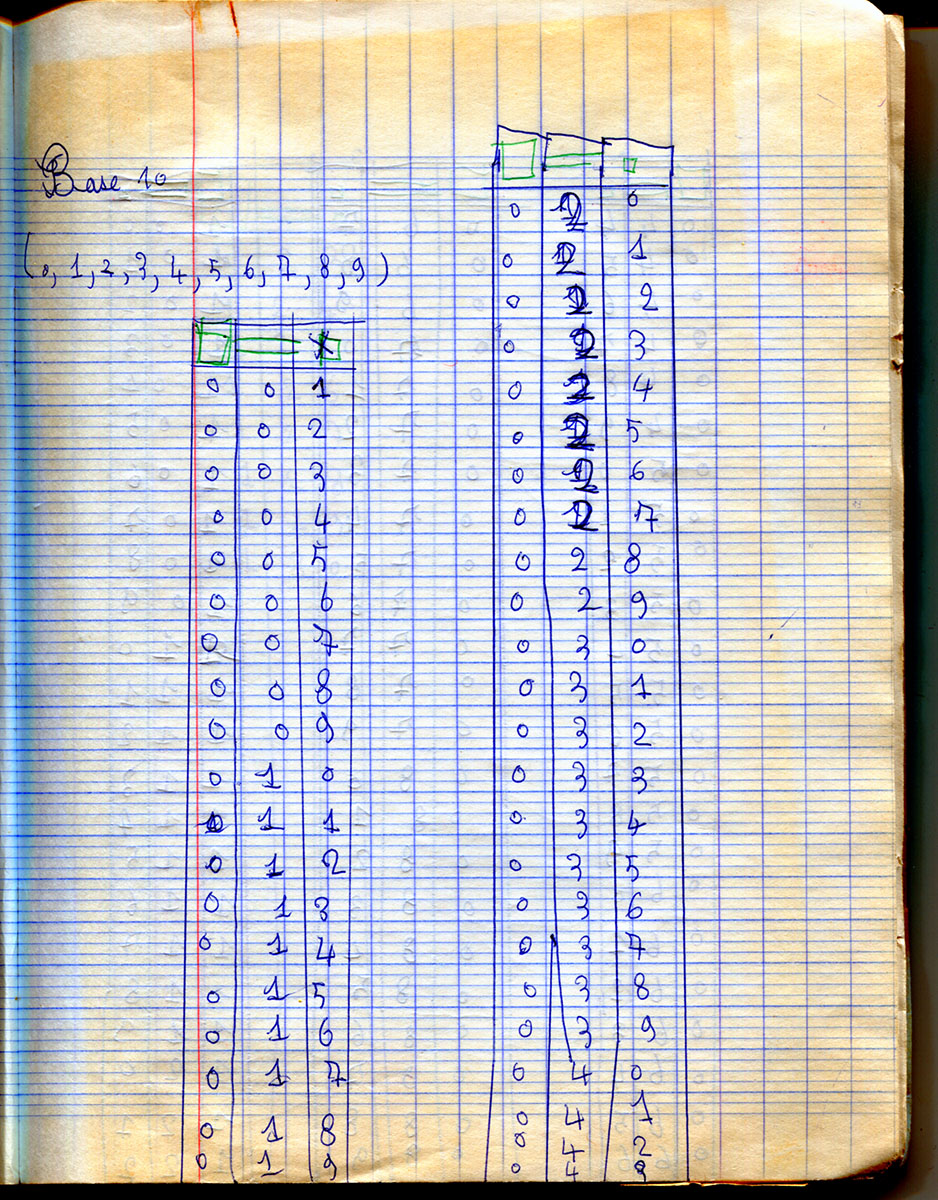 Base 10
(0, 1, 2, 3, 4, 5, 6, 7, 8, 9)
0 0 1
0 0 2
0 0 3
0 0 4
0 0 5
0 0 6
0 0 7
0 0 8
0 0 9
0 1 0
0 1 1
0 1 2
0 1 3
0 1 4
0 1 5
0 1 6
0 1 7
0 1 8
0 1 9
0 2 0
0 2 1
0 2 2
0 2 3
0 2 4
0 2 5
0 2 6
0 2 7
0 2 8
0 2 9
0 3 0
0 3 1
0 3 2
0 3 3
0 3 4
0 3 5
0 3 6
0 3 7
0 3 8
0 3 9
0 4 0
0 4 1
0 4 2
0 4